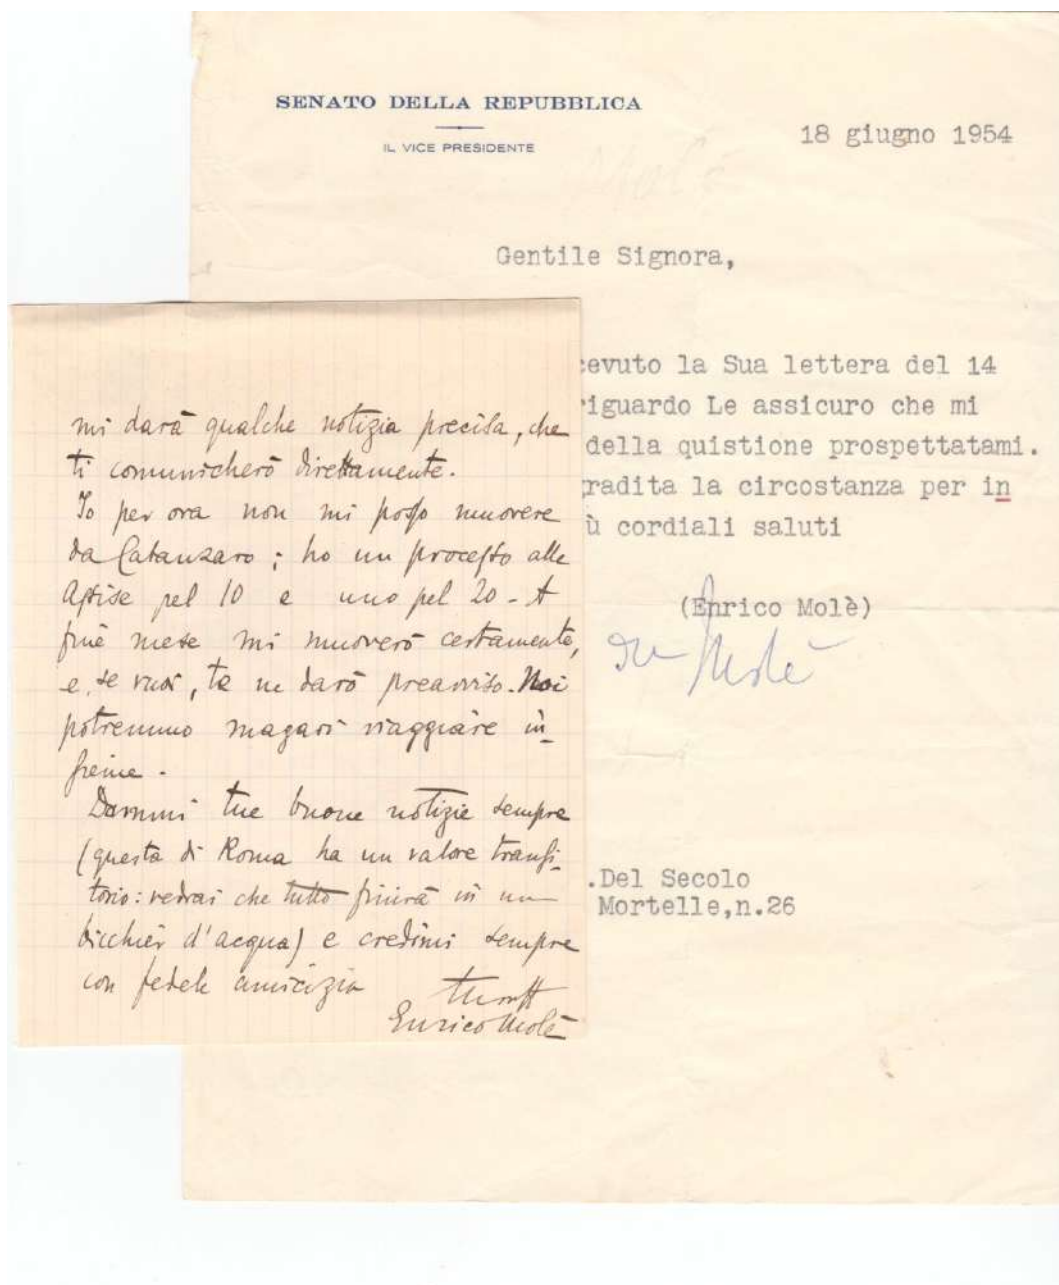 SENATO DELLA REPUBBLICA
IL VICE PRESIDENTE
18 giugno 1954
Gentile Signora,
cevuto la Sua lettera del 14
riguardo Le assicuro che mi
della quistione prospettatami.
gradita la circostanza per in
ù cordiali saluti
(Enrico Molè)
Molè
.Del Secolo
Mortelle,n.26
mi darà qualche notizia precisa, che
ti comunicherò direttamente.
Io per ora non mi posso muovere
da Catanzaro; ho un processo alle
Assise pel 10 e uno pel 20 - A
fine mese mi muoverò certamente,
e, se vuoi, te ne darò preavviso. Noi
potremmo magari viaggiare in_
sieme.
Dammi tue buone notizie sempre
(questa di Roma ha un valore transi_
torio: vedrai che tutto finirà in un
bicchier d'acqua) e credimi sempre
con fedele amicizia
Enrico Molè